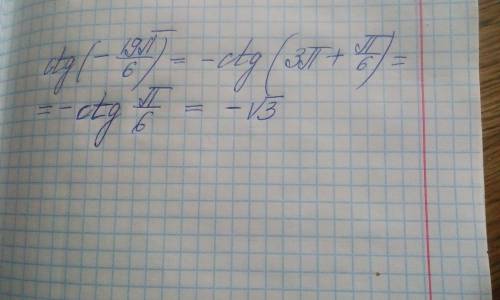 ctg(-19π/6) = -ctg(3π + π/6) =
= -ctg π/6 = -√3